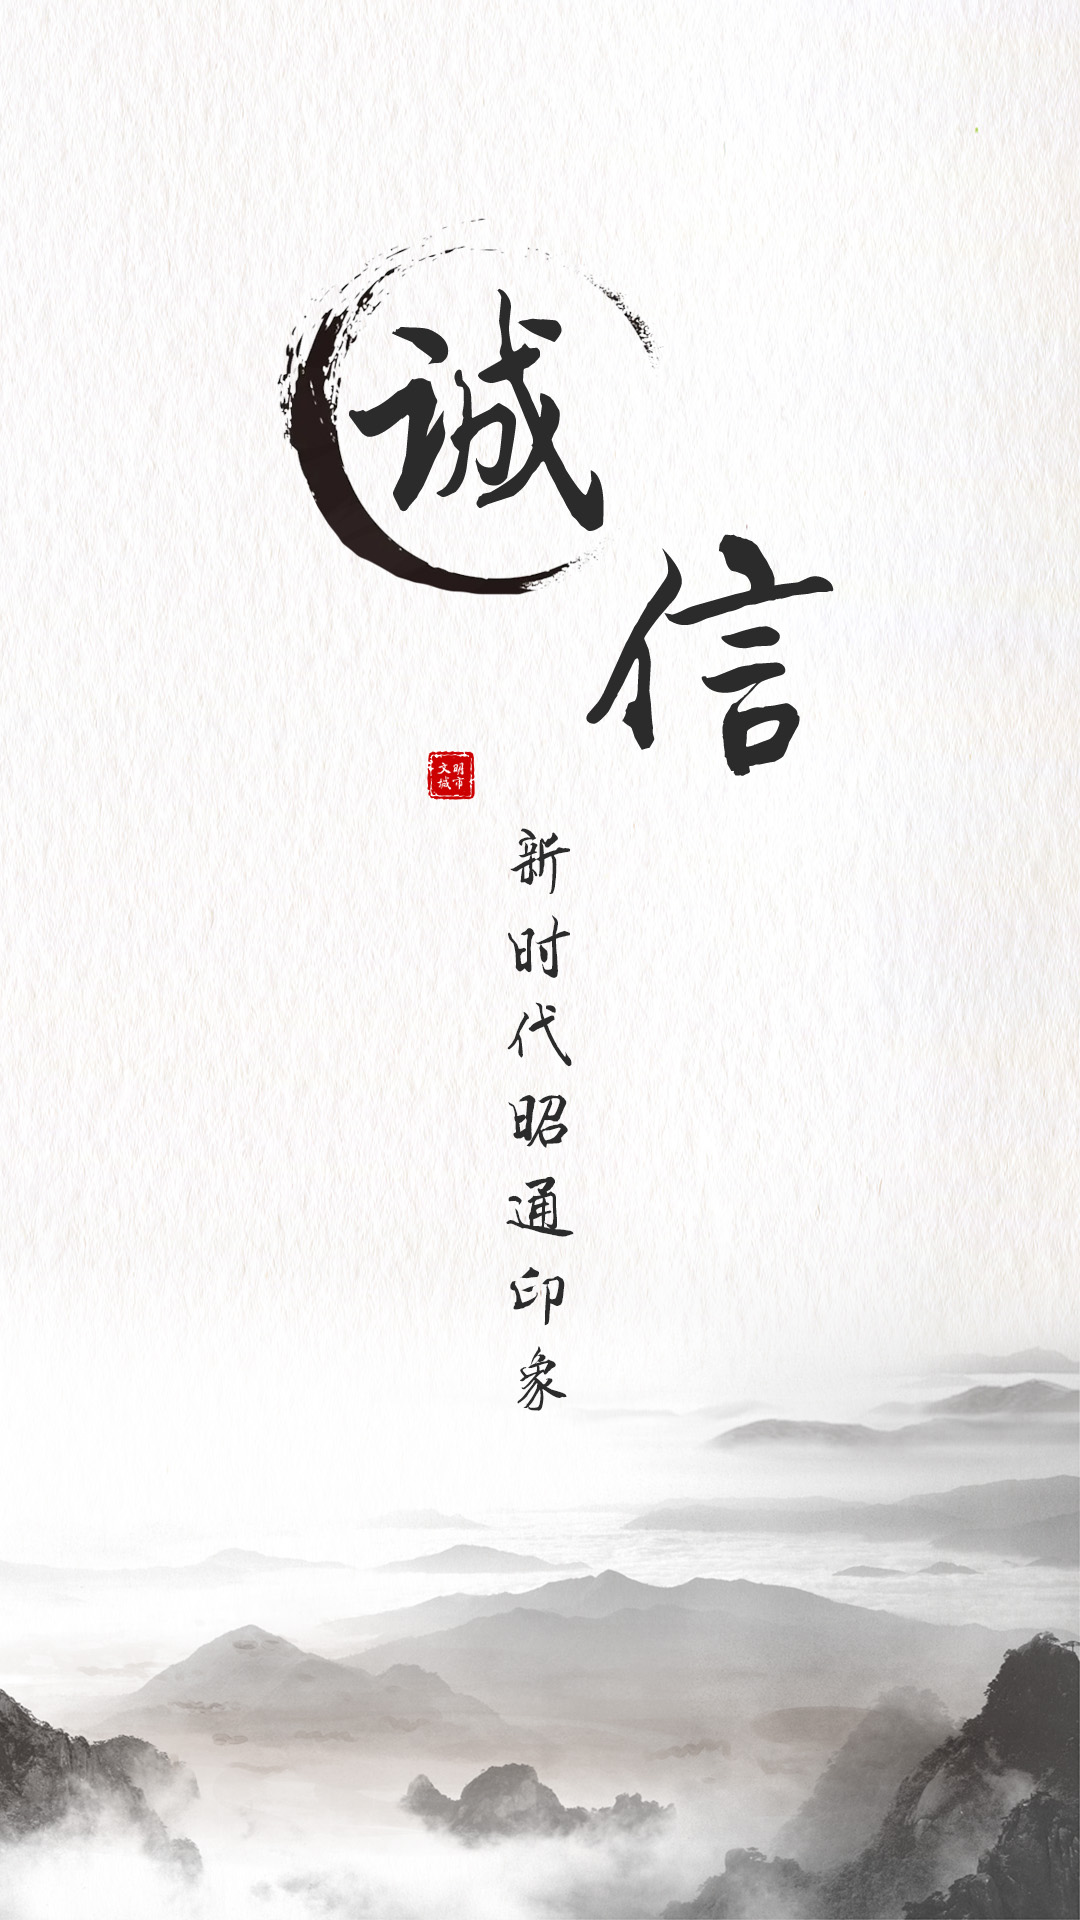 诚
信
文明
城市
新时代昭通印象